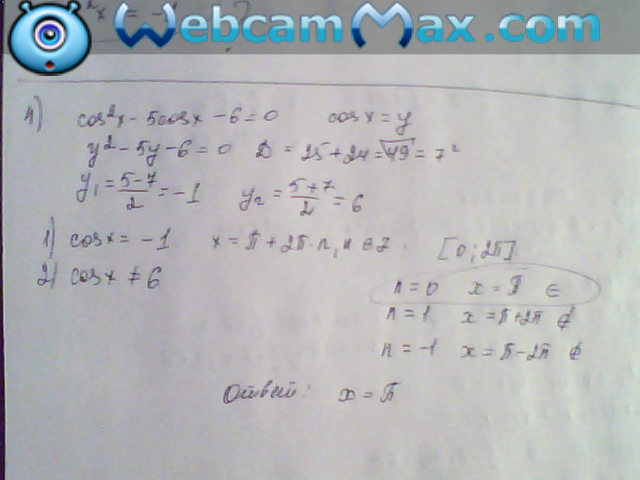 ²x = -1 ?
WebcamMax.com
4) cos²x - 5cosx - 6 = 0 cosx = y
y² - 5y - 6 = 0 D = 25 + 24 = √49 = 7²
y₁ = (5-7)/2 = -1 y₂ = (5+7)/2 = 6
1) cosx = -1 x = π + 2π·n, n ∈ Z. [0; 2π]
2) cosx ≠ 6
n = 0 x = π ∈
n = 1 x = π + 2π ∉
n = -1 x = π - 2π ∉
Ответ: x = π